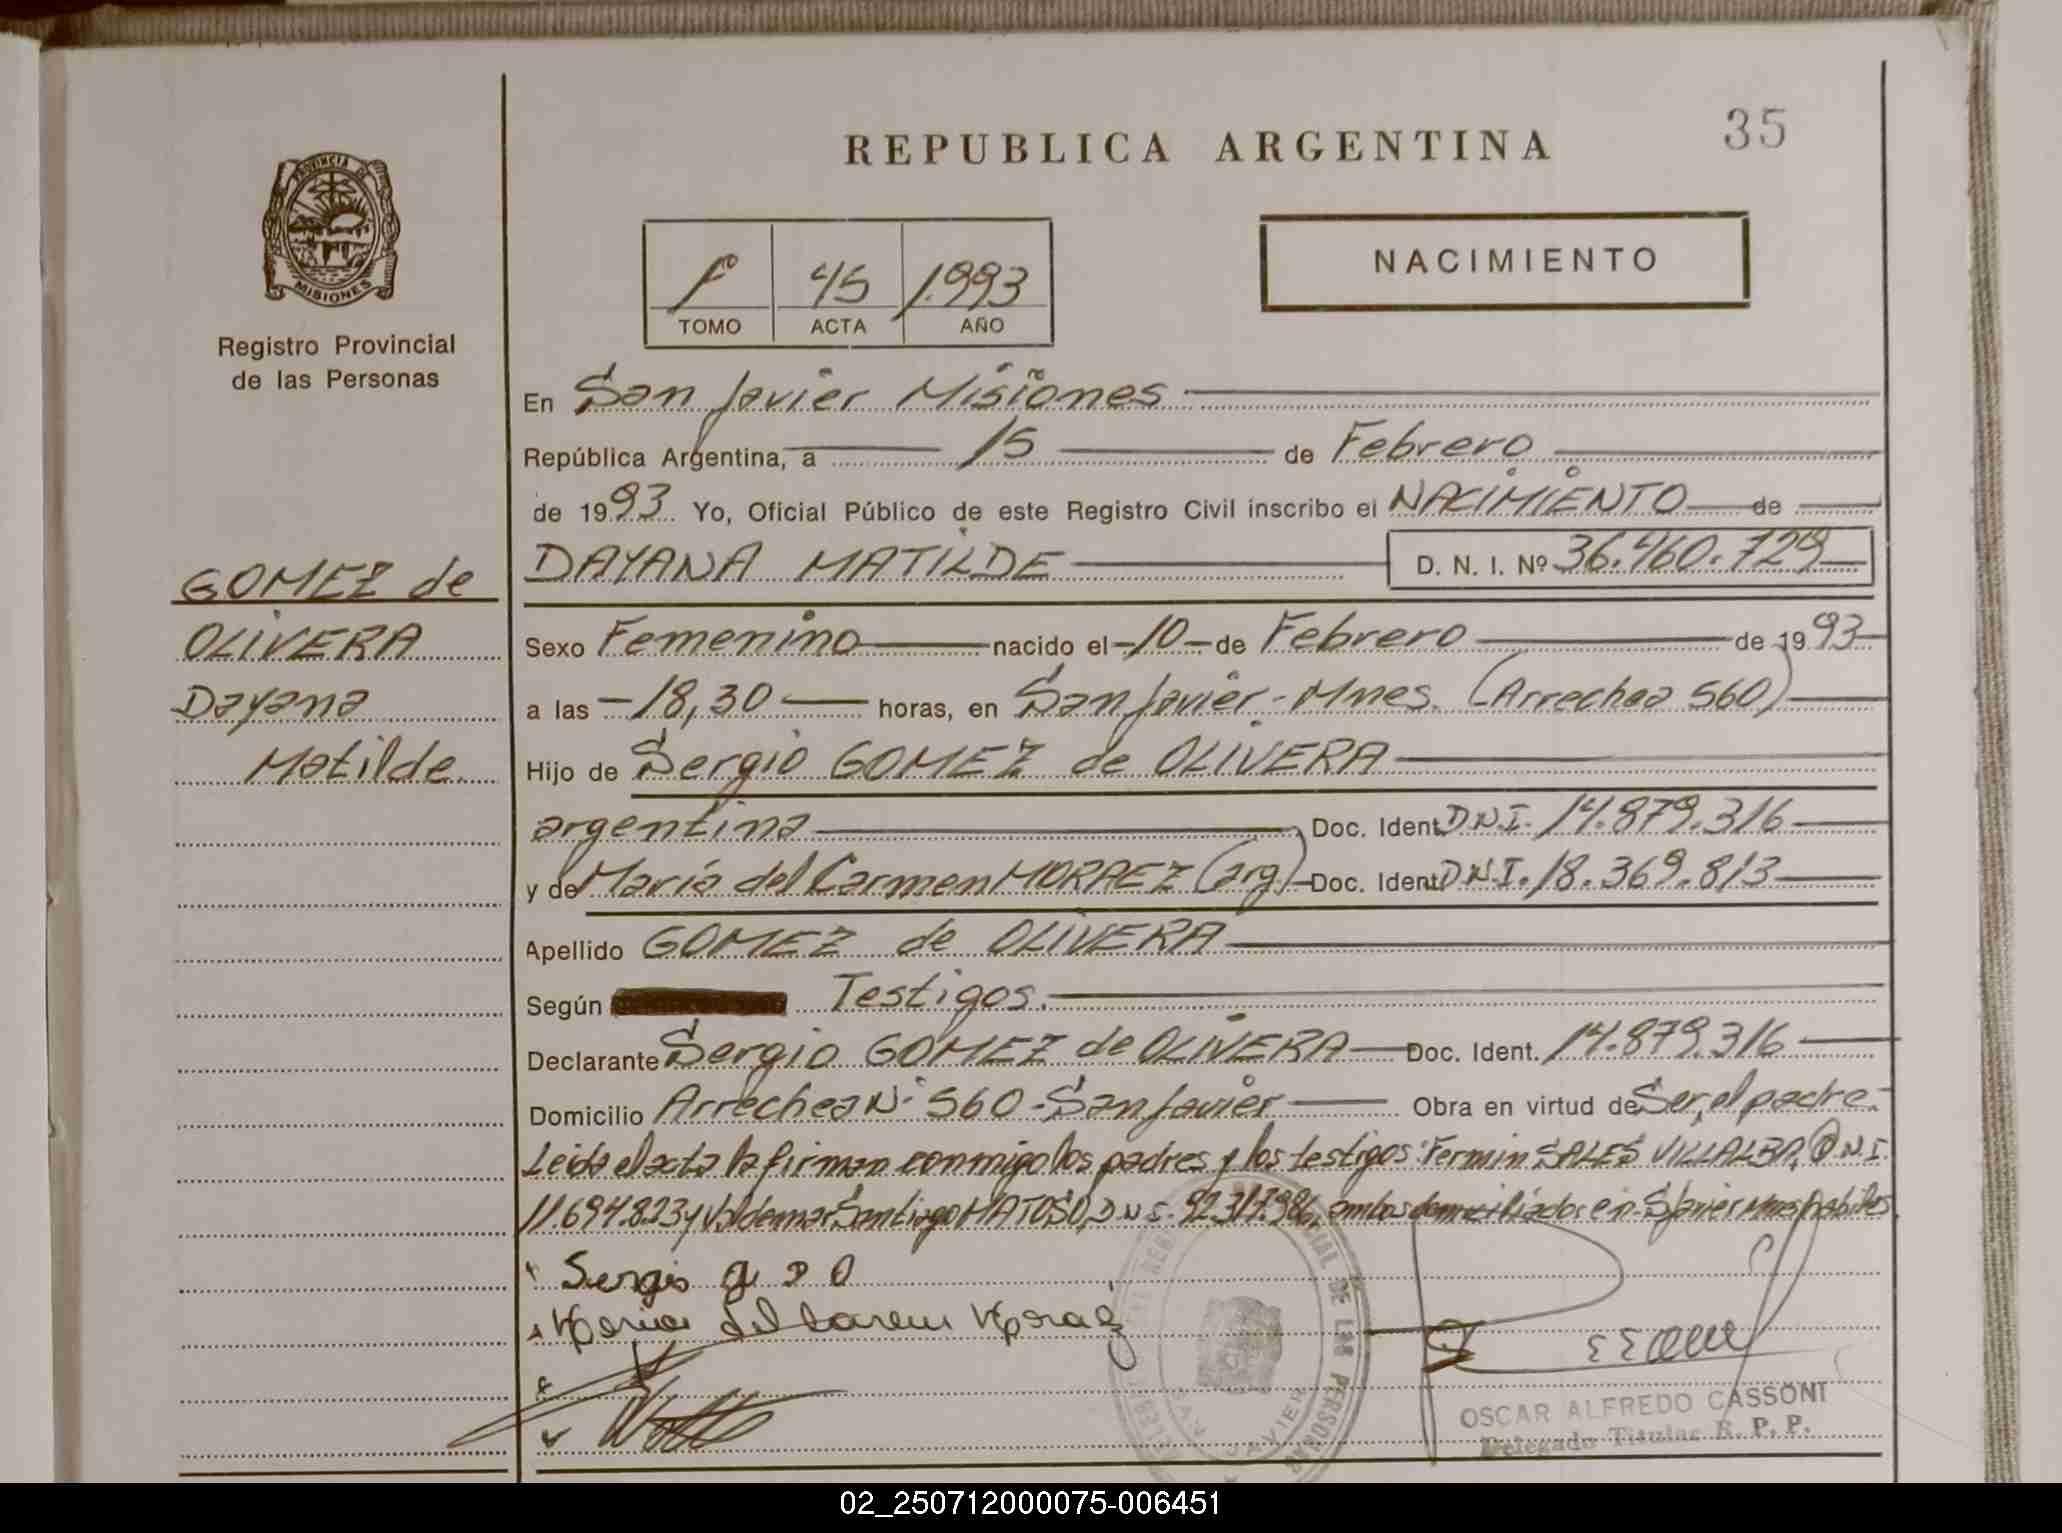 35
REPUBLICA ARGENTINA
PROVINCIA DE
MISIONES
Registro Provincial
de las Personas
NACIMIENTO
1º 45 1.993
TOMO ACTA AÑO
En San Javier Misiones
República Argentina, a 15 de Febrero
de 1993. Yo, Oficial Público de este Registro Civil inscribo el NACIMIENTO de
GOMEZ de
OLIVERA
Dayana
Matilde
DAYANA MATILDE D. N. I. Nº 36.460.729
Sexo Femenino nacido el 10 de Febrero de 1993
a las 18,30 horas, en San Javier - Mnes. (Arrechea 560)
Hijo de Sergio GOMEZ de OLIVERA
argentina Doc. Ident. D.N.I. 14.879.316
y de María del Carmen MORAEZ (arg) Doc. Ident. D.N.I. 18.369.813
Apellido GOMEZ de OLIVERA
Según Testigos.
Declarante Sergio GOMEZ de OLIVERA Doc. Ident. 14.879.316
Domicilio Arrechea Nº 560 - San Javier Obra en virtud de Ser el padre.
Leida el acta la firman conmigo los padres y los testigos: Fermin SALES VILLALBA, D.N.I.
11.694.823 y Valdemar Santiago MATOSO, D.N.I. 92.317.986, ambos domiciliados en S. Javier Mnes habiles.
Sergio G D O
Maria del Carmen Moraez
OSCAR ALFREDO CASSONI
Delegado Titular R. P. P.
02_250712000075-006451